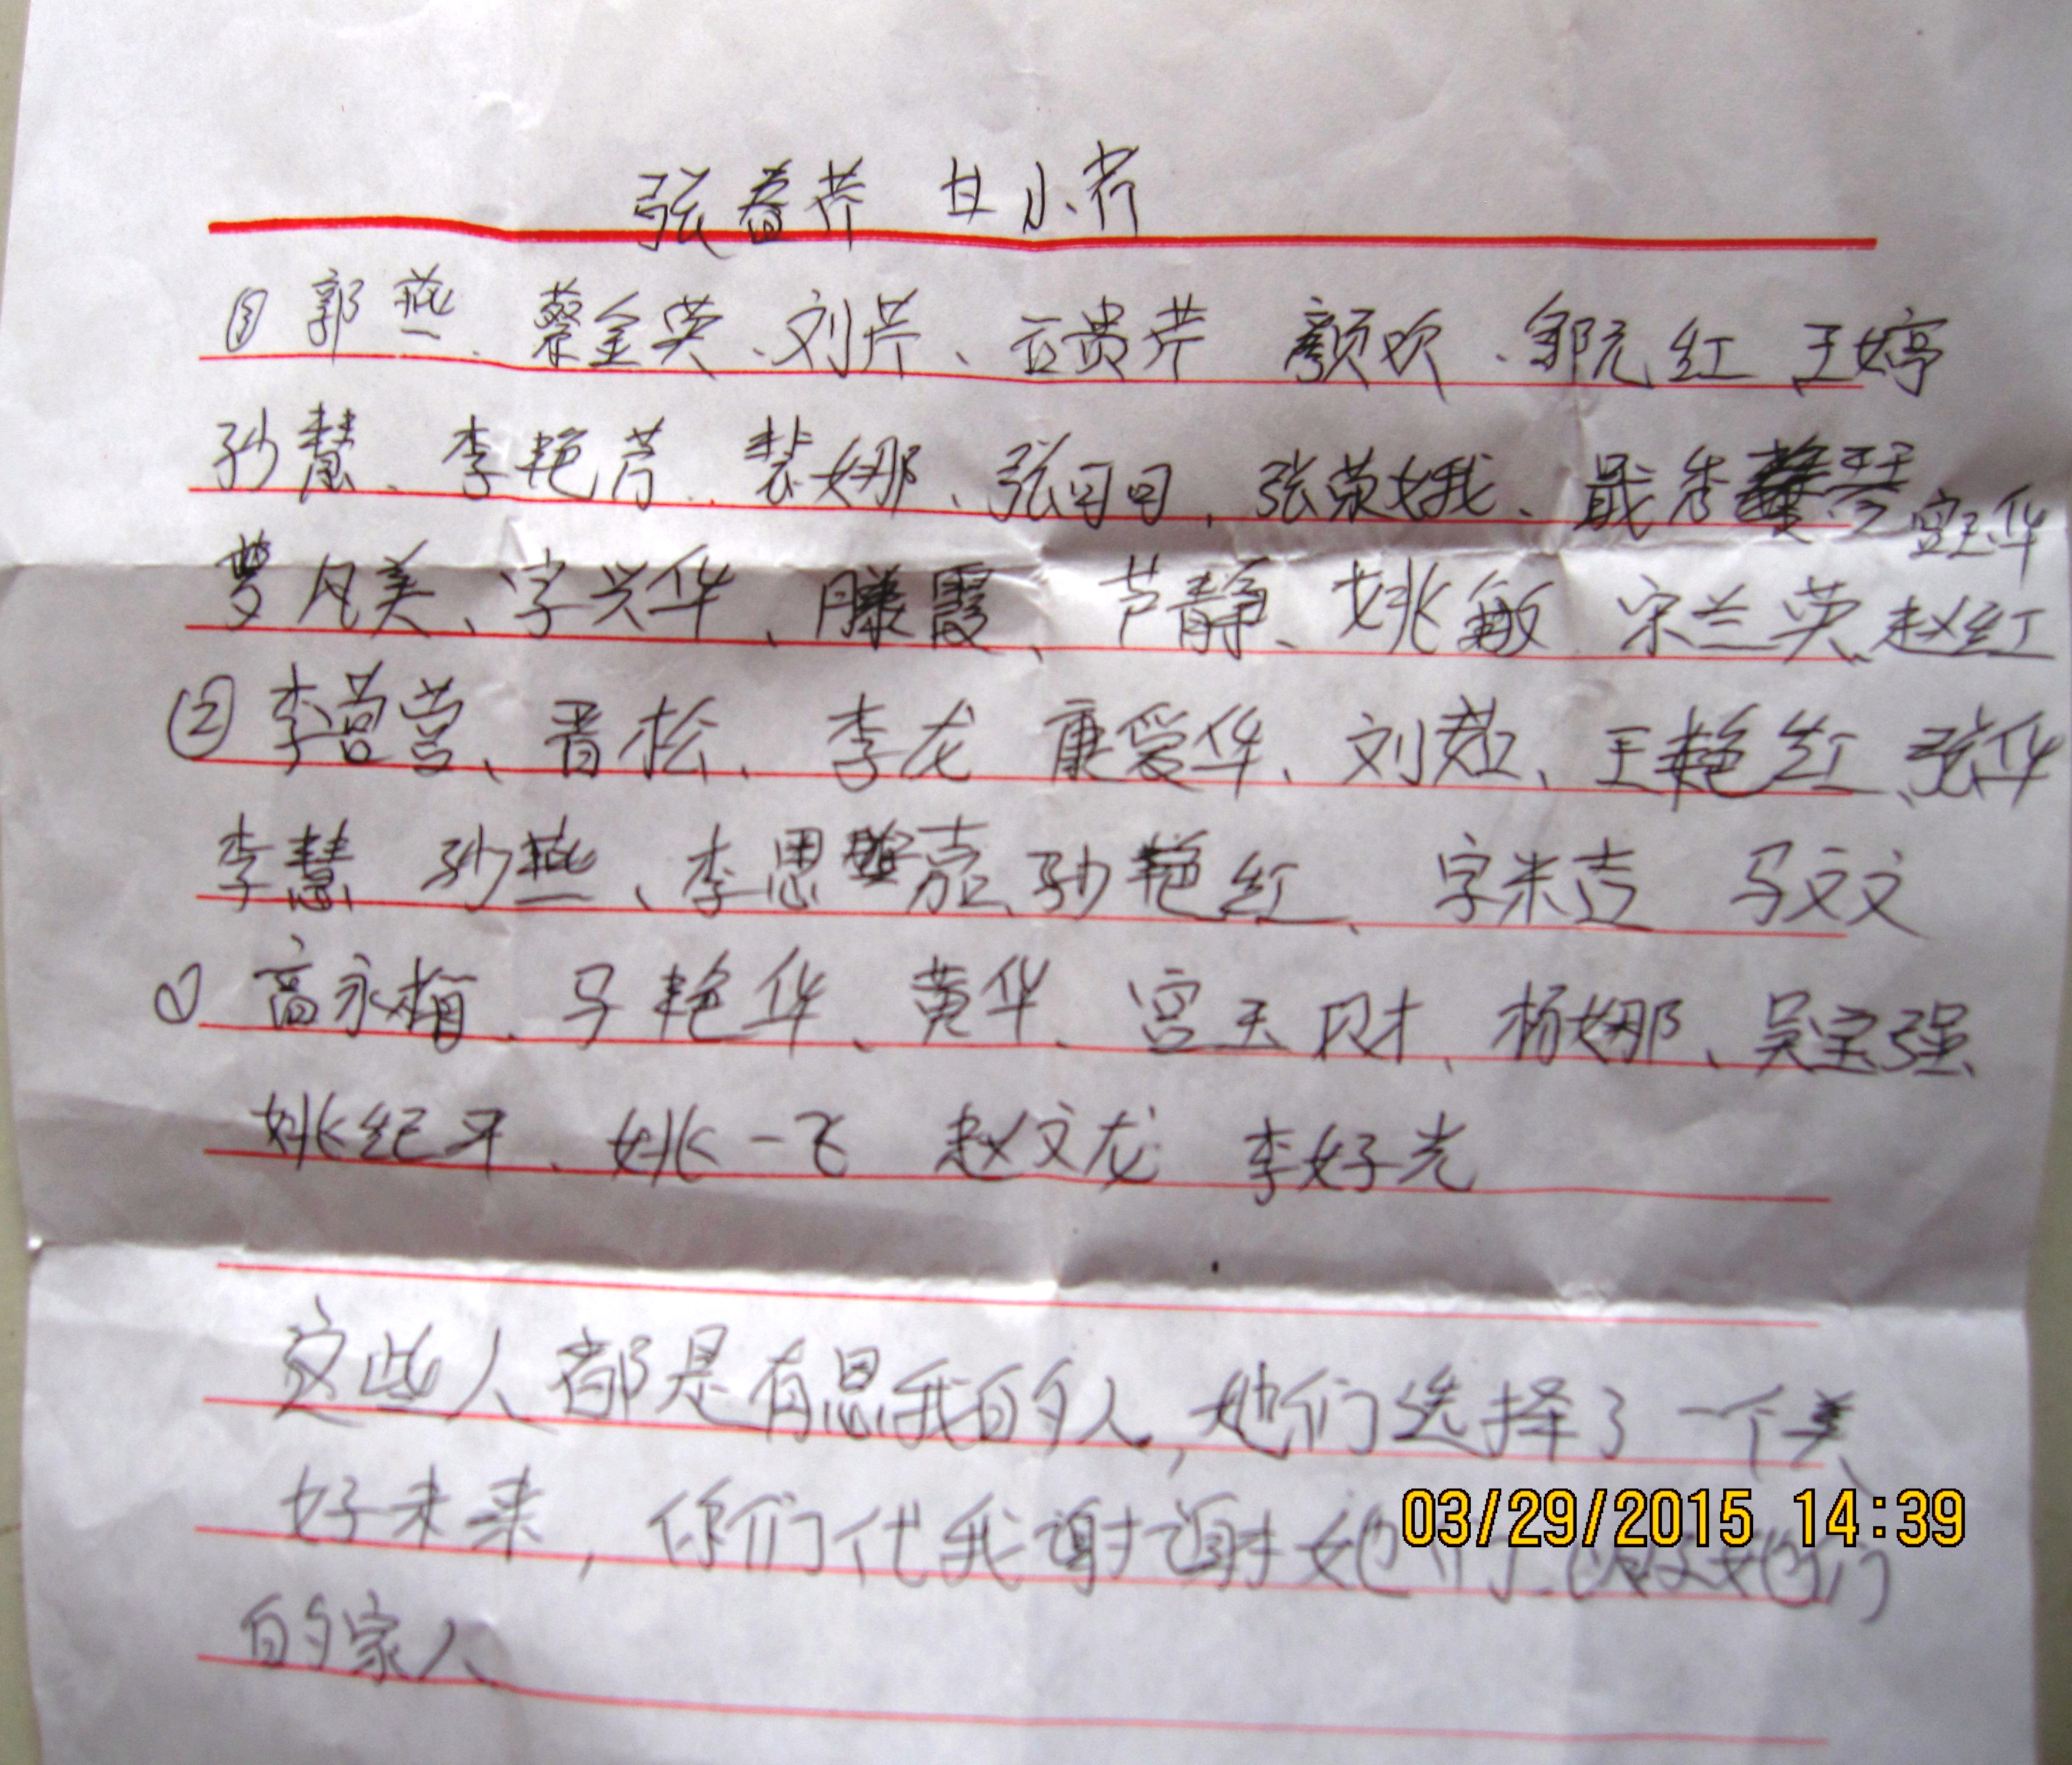 张春芹 甘小芹
③ 郭燕、蔡金英、刘芹、云贵芹 颜欢、邹元红 王婷
孙慧、李艳芹、裴娜、张日日、张荣娥、戢秀琴 宫玉华
罗凡美、字兴华、滕霞、芦静、姚敏 宋兰英、赵红
② 李营营、晋松、李龙 康爱华、刘茹、王艳红、张华
李慧 孙燕、李思嘉、孙艳红、字米吉 马文文
① 高永梅、马艳华、黄华、宫玉 才、杨娜、吴宝强、
姚纪牙、姚一飞 赵文龙 李好光
这些人都是有恩我的人,她们选择了一个美
好未来,你们代我谢谢她们 她们
的家人
03/29/2015 14:39